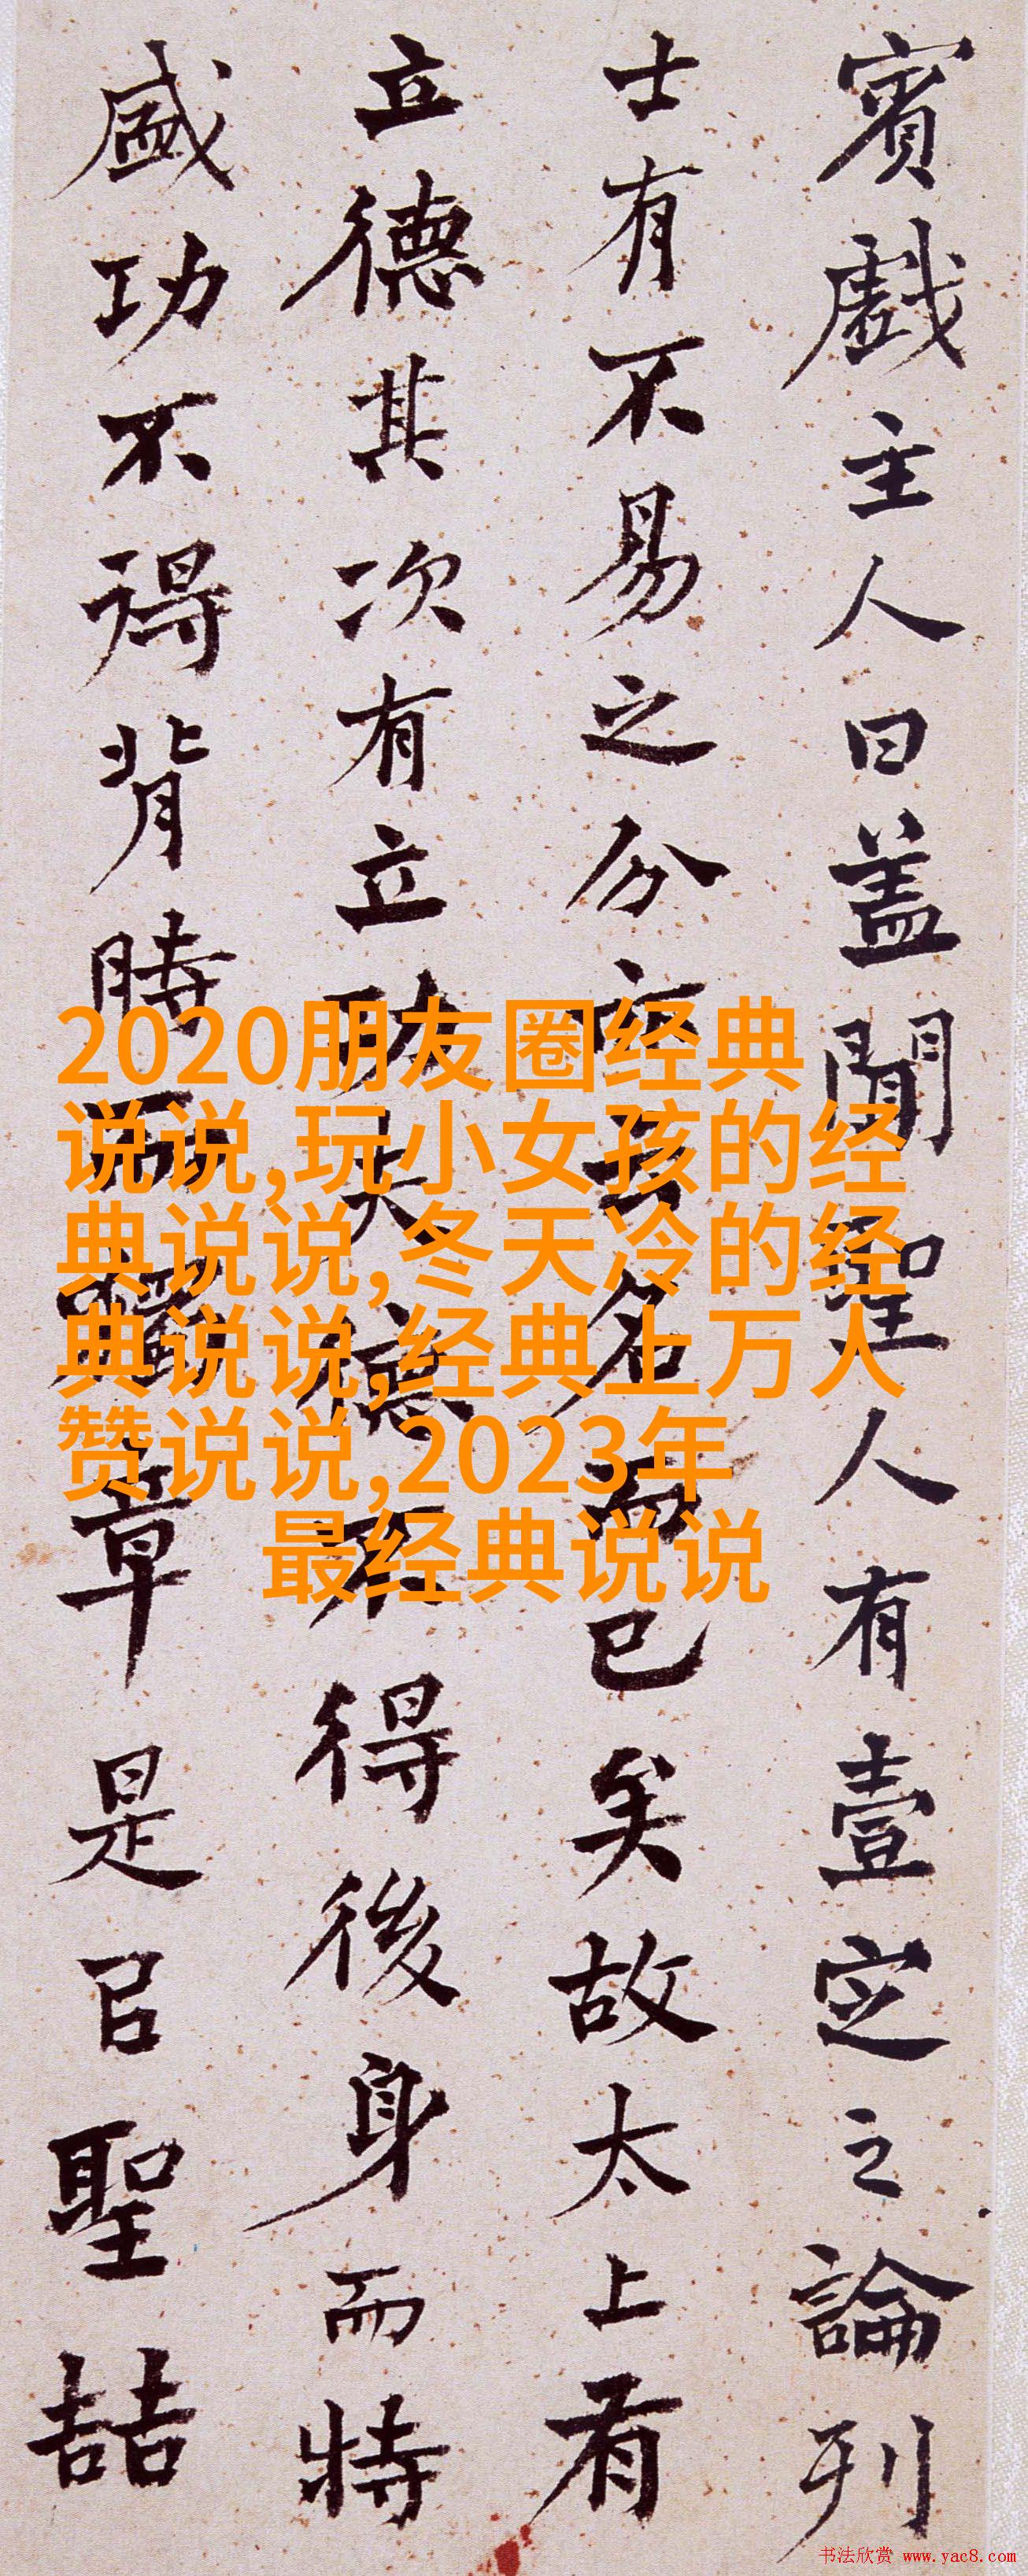 賓戲主人曰蓋聞聖人有壹定之論列
士有不易之分亦云名而已矣故太上有
立德其次有立功夫德不得後身而特
盛功不得背時而獨章是㠯聖喆
2020朋友圈经典
说说,玩小女孩的经
典说说,冬天冷的经
典说说,经典上万人
赞说说,2023年
最经典说说
书法欣赏 www.yac8.com